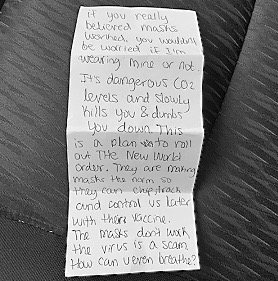 if you really
believed masks
worked, you wouldn't
be worried if I'm
wearing mine or not.
It's dangerous CO2
levels and slowly
kills you & dumbs
you down. This
is a plan to roll
out THe New World
order. They are making
masks the norm so
they can chip, track
and control us later
with there vaccine.
The masks don't work
the virus is a scam
How can u even breathe?